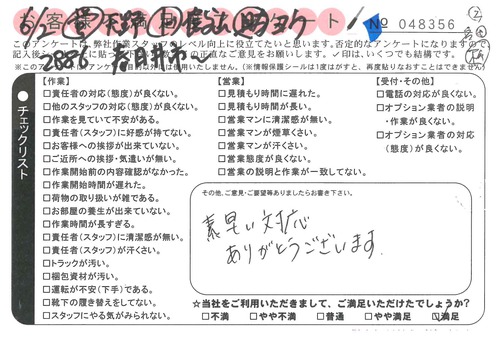 № 048356
このアンケートは、弊社作業スタッフのレベル向上に役立てたいと思います。否定的なアンケートになりますので、
春日井市
チェックリスト
【作業】
□責任者の対応(態度)が良くない。
□他のスタッフの対応(態度)が良くない。
□作業を見ていて不安がある。
□責任者(スタッフ)に好感が持てない。
□お客様への挨拶が出来ていない。
□ご近所への挨拶・気遣いが無い。
□作業開始前の内容確認がなかった。
□作業開始時間が遅れた。
□荷物の取り扱いが雑である。
□お部屋の養生が出来ていない。
□作業時間が長すぎる。
□責任者(スタッフ)に清潔感が無い。
□責任者(スタッフ)が汗くさい。
□トラックが汚い。
□梱包資材が汚い。
□運転が不安(下手)である。
□靴下の履き替えをしてない。
□スタッフにやる気がみられない。
【営業】
□見積もりに遅れた。
□見積もり時間が長い。
□営業マンに清潔感が無い。
□営業マンが煙草くさい。
□営業マンが汗くさい。
□営業態度が良くない。
□営業の説明と作業が一致してない。
【受付・その他】
□電話の対応が良くない。
□オプション業者の説明
・作業が良くない。
□オプション業者の対応
(態度)が良くない。
その他、ご意見・ご要望等ありましたらお書き下さい。
素早い対応
ありがとうございます
☆当社をご利用いただきまして、ご満足いただけたでしょうか?
□不満 □やや不満 □普通 □やや満足 ☑満足